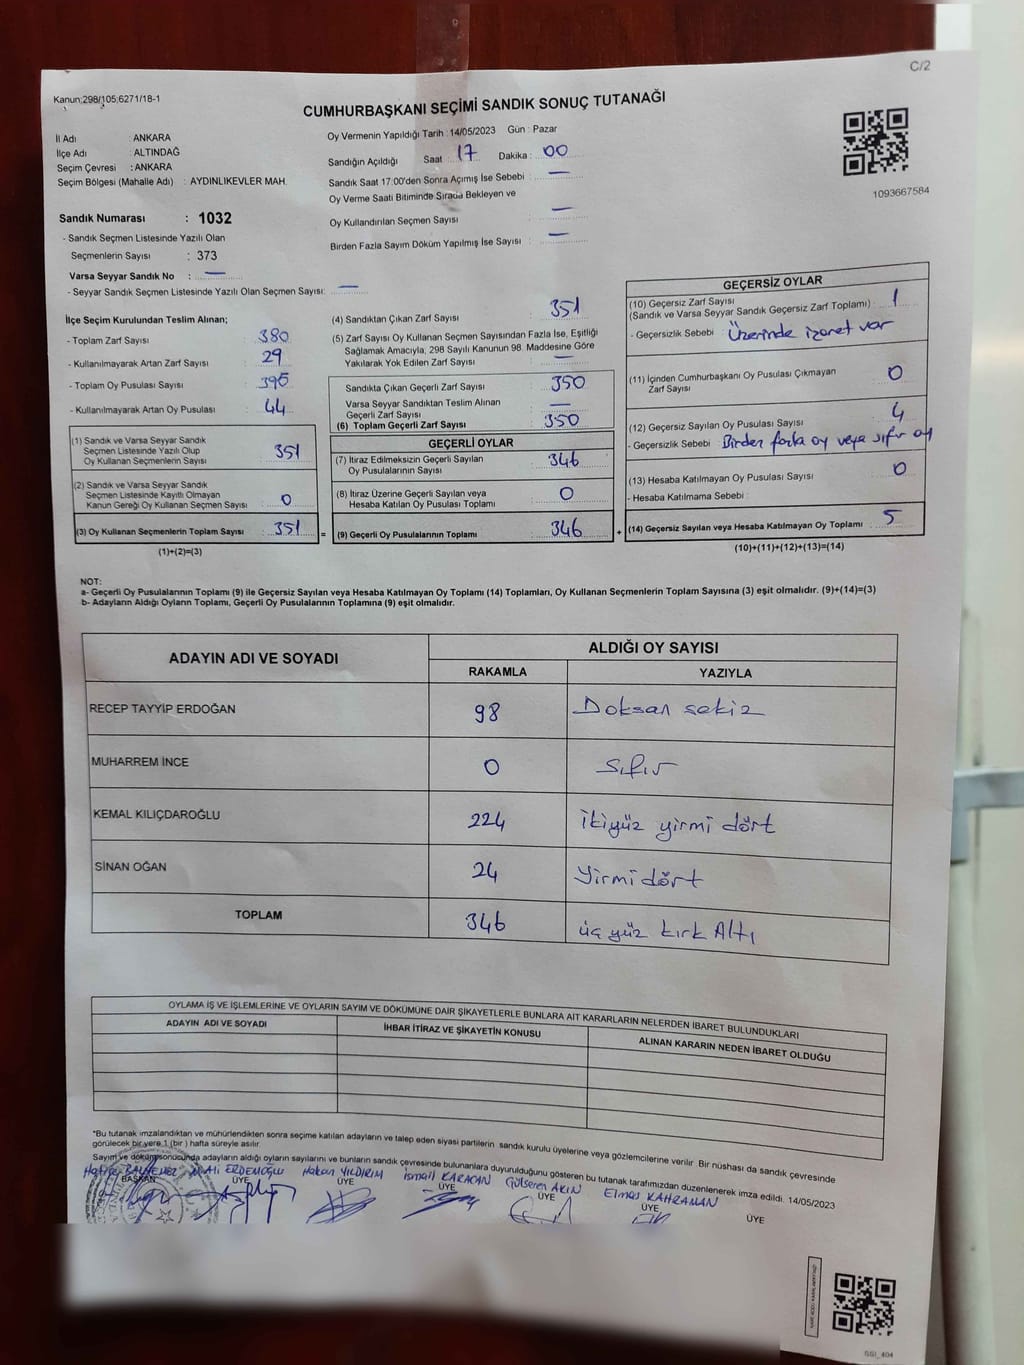 C/2
Kanun:298/105;6271/18-1
CUMHURBAŞKANI SEÇİMİ SANDIK SONUÇ TUTANAĞI
İl Adı : ANKARA
İlçe Adı : ALTINDAĞ
Seçim Çevresi : ANKARA
Seçim Bölgesi (Mahalle Adı) : AYDINLIKEVLER MAH.
Sandık Numarası : 1032
- Sandık Seçmen Listesinde Yazılı Olan
Seçmenlerin Sayısı : 373
Varsa Seyyar Sandık No : —
- Seyyar Sandık Seçmen Listesinde Yazılı Olan Seçmen Sayısı: —
Oy Vermenin Yapıldığı Tarih : 14/05/2023 Gün : Pazar
Sandığın Açıldığı Saat : 17 Dakika : 00
Sandık Saat 17:00'den Sonra Açımış İse Sebebi : —
Oy Verme Saati Bitiminde Sırada Bekleyen ve
Oy Kullandırılan Seçmen Sayısı : —
Birden Fazla Sayım Döküm Yapılmış İse Sayısı : —
1093667584
İlçe Seçim Kurulundan Teslim Alınan;
- Toplam Zarf Sayısı : 380
- Kullanılmayarak Artan Zarf Sayısı : 29
- Toplam Oy Pusulası Sayısı : 395
- Kullanılmayarak Artan Oy Pusulası : 44
(1) Sandık ve Varsa Seyyar Sandık
Seçmen Listesinde Yazılı Olup
Oy Kullanan Seçmenlerin Sayısı : 351
(2) Sandık ve Varsa Seyyar Sandık
Seçmen Listesinde Kayıtlı Olmayan
Kanun Gereği Oy Kullanan Seçmen Sayısı : 0
(3) Oy Kullanan Seçmenlerin Toplam Sayısı : 351
(1)+(2)=(3)
(4) Sandıktan Çıkan Zarf Sayısı : 351
(5) Zarf Sayısı Oy Kullanan Seçmen Sayısından Fazla İse, Eşitliği
Sağlamak Amacıyla, 298 Sayılı Kanunun 98. Maddesine Göre
Yakılarak Yok Edilen Zarf Sayısı : —
Sandıkta Çıkan Geçerli Zarf Sayısı : 350
Varsa Seyyar Sandıktan Teslim Alınan
Geçerli Zarf Sayısı : —
(6) Toplam Geçerli Zarf Sayısı : 350
GEÇERLİ OYLAR
(7) İtiraz Edilmeksizin Geçerli Sayılan
Oy Pusulalarının Sayısı : 346
(8) İtiraz Üzerine Geçerli Sayılan veya
Hesaba Katılan Oy Pusulası Toplamı : 0
= (9) Geçerli Oy Pusulalarının Toplamı : 346
GEÇERSİZ OYLAR
(10) Geçersiz Zarf Sayısı
(Sandık ve Varsa Seyyar Sandık Geçersiz Zarf Toplamı) : 1
- Geçersizlik Sebebi : Üzerinde işaret var
(11) İçinden Cumhurbaşkanı Oy Pusulası Çıkmayan
Zarf Sayısı : 0
(12) Geçersiz Sayılan Oy Pusulası Sayısı : 4
- Geçersizlik Sebebi : Birden fazla oy veya sıfır oy
(13) Hesaba Katılmayan Oy Pusulası Sayısı : 0
- Hesaba Katılmama Sebebi :
+ (14) Geçersiz Sayılan veya Hesaba Katılmayan Oy Toplamı : 5
(10)+(11)+(12)+(13)=(14)
NOT:
a- Geçerli Oy Pusulalarının Toplamı (9) ile Geçersiz Sayılan veya Hesaba Katılmayan Oy Toplamı (14) Toplamları, Oy Kullanan Seçmenlerin Toplam Sayısına (3) eşit olmalıdır. (9)+(14)=(3)
b- Adayların Aldığı Oyların Toplamı, Geçerli Oy Pusulalarının Toplamına (9) eşit olmalıdır.
ADAYIN ADI VE SOYADI ALDIĞI OY SAYISI
RAKAMLA YAZIYLA
RECEP TAYYİP ERDOĞAN 98 Doksan sekiz
MUHARREM İNCE 0 Sıfır
KEMAL KILIÇDAROĞLU 224 ikiyüz yirmi dört
SİNAN OĞAN 24 Yirmidört
TOPLAM 346 üç yüz kırk Altı
OYLAMA İŞ VE İŞLEMLERİNE VE OYLARIN SAYIM VE DÖKÜMÜNE DAİR ŞİKAYETLERLE BUNLARA AİT KARARLARIN NELERDEN İBARET BULUNDUKLARI
ADAYIN ADI VE SOYADI İHBAR İTİRAZ VE ŞİKAYETİN KONUSU ALINAN KARARIN NEDEN İBARET OLDUĞU
"Bu tutanak imzalandıktan ve mühürlendikten sonra seçime katılan adayların ve talep eden siyasi partilerin sandık kurulu üyelerine veya gözlemcilerine verilir. Bir nüshası da sandık çevresinde
görülecek bir yere 1 (bir) hafta süreyle asılır.
Sayım ve döküm sonucunda adayların aldığı oyların sayılarını ve bunların sandık çevresinde bulunanlara duyurulduğunu gösteren bu tutanak tarafımızdan düzenlenerek imza edildi. 14/05/2023
Ali ERDEMOĞLU Hakan YILDIRIM İsmail KARACAN Gülseren AKIN Elmas KAHRAMAN
BAŞKAN ÜYE ÜYE ÜYE ÜYE ÜYE ÜYE
SSI_404